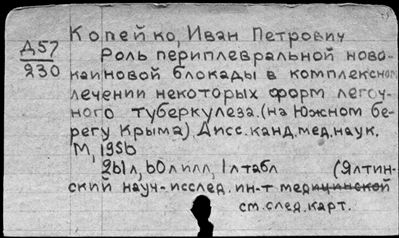 Копейко, Иван Петрович
Д57
930
Роль периплевральной ново-
каиновой блокады в комплексном
лечении некоторых форм легоч-
ного туберкулеза.(на Южном бе-
регу Крыма) Дисс.канд.мед.наук.
М, 1956
261л, 60л илл, 1л табл (Ялтин-
ский науч-исслед. ин-т медицинской
см.след.карт.